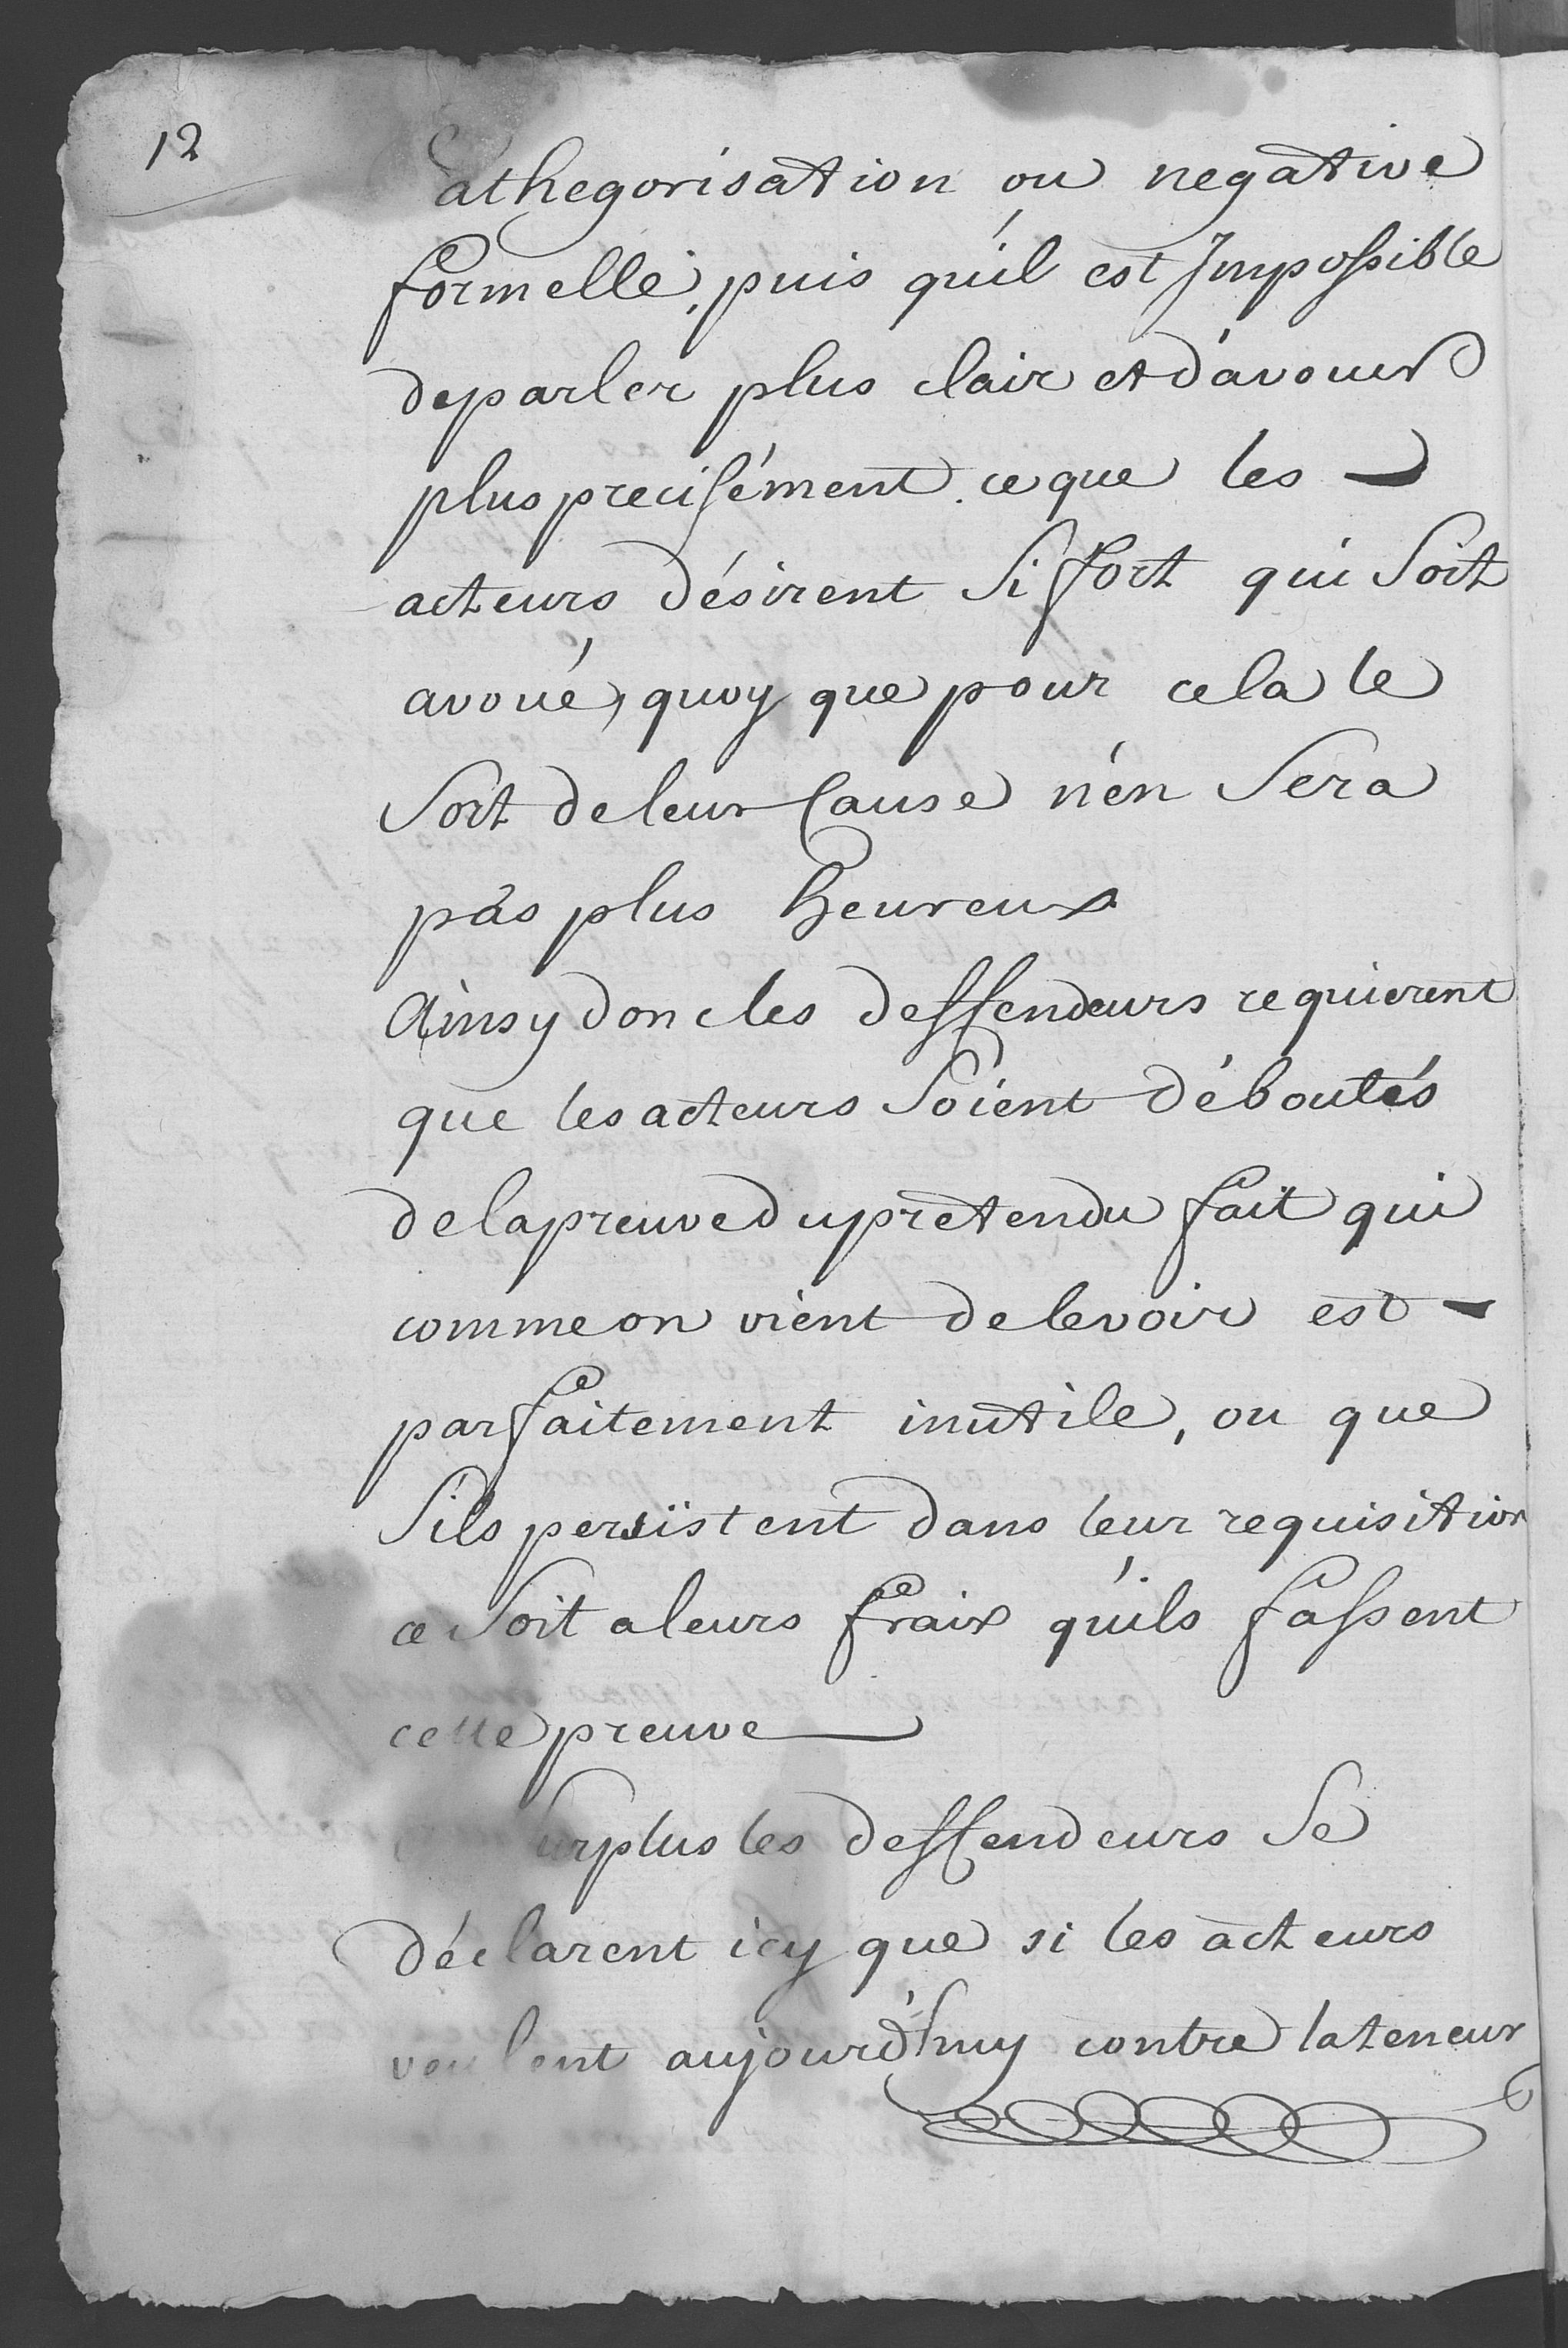 12
Cathegorisation ou negative
formelle, puis qu'il est Jmpossible
de parler plus clair et d'avouer
plus precisément ce que les
acteurs désirent si fort qui soit
avoué, quoy que pour cela le
sort de leur Cause n'en sera
pas plus heureux
Ainsy donc les deffendeurs requierent
que les acteurs soient déboutés
de la preuve du pretendu fait qui
comme on vient de le voir est
parfaitement inutile, ou que
s'ils persistent dans leur requisition
ce soit a leurs fraix qu'ils fassent
cette preuve
surplus les deffendeurs se
déclarent icy que si les acteurs
veulent aujourd'huy contre la teneur